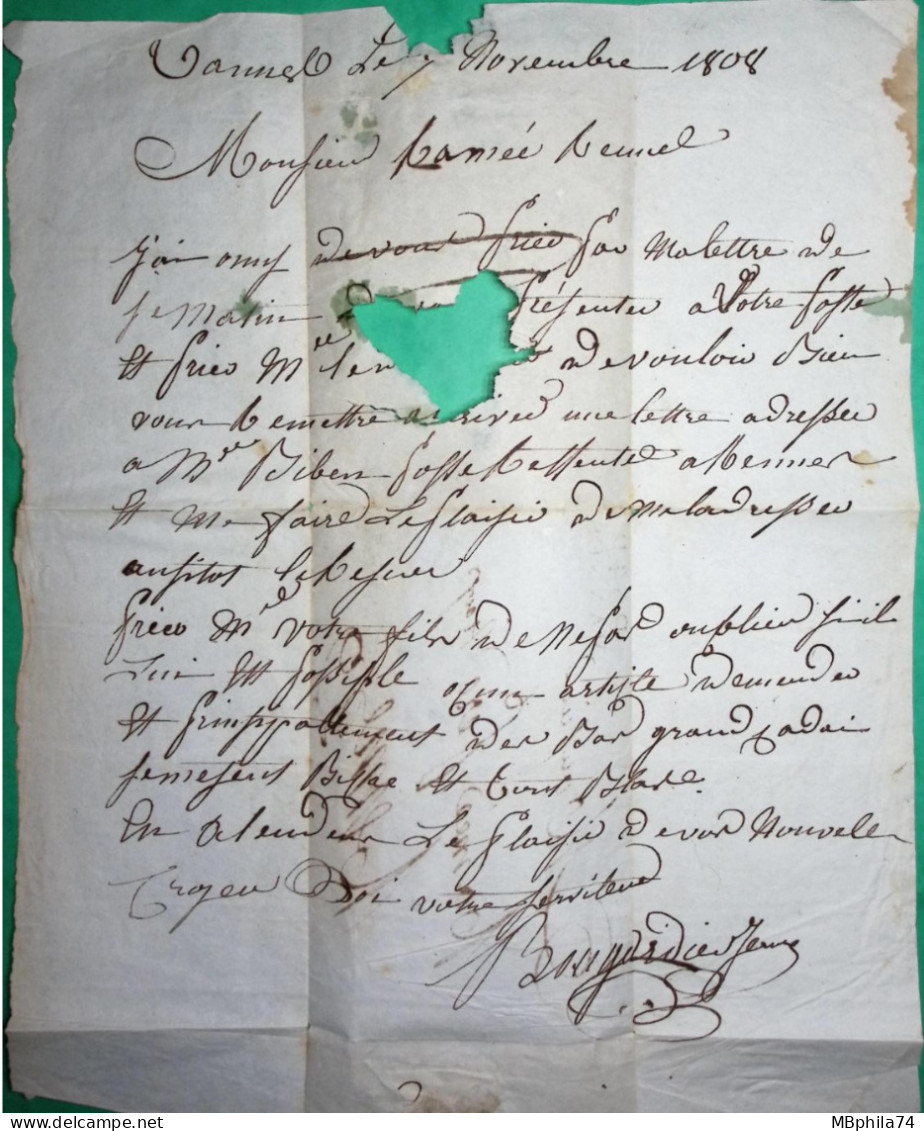 Vannes Le 7 Novembre 1808
Monsieur Ramée Rennes
J'ai omis de vous prier par Ma lettre de
Ce Matin de présenter a Votre poste
Et prier Mr de vouloir Bien
vous Remettre une lettre adressée
a Mr Biben poste Restente a Rennes
Et Me faire Le plaisir de Me ladresser
ausitos le Resues
prier Mr votre fils de Ne pas oublier si il
Lui Est possible artiste
Et des Bas grand
Et tout Blanc.
En Atendens Le plaisir de vos Nouvelles
Croyez Moi votre serviteur
Bougardier Jeune
MBphila74